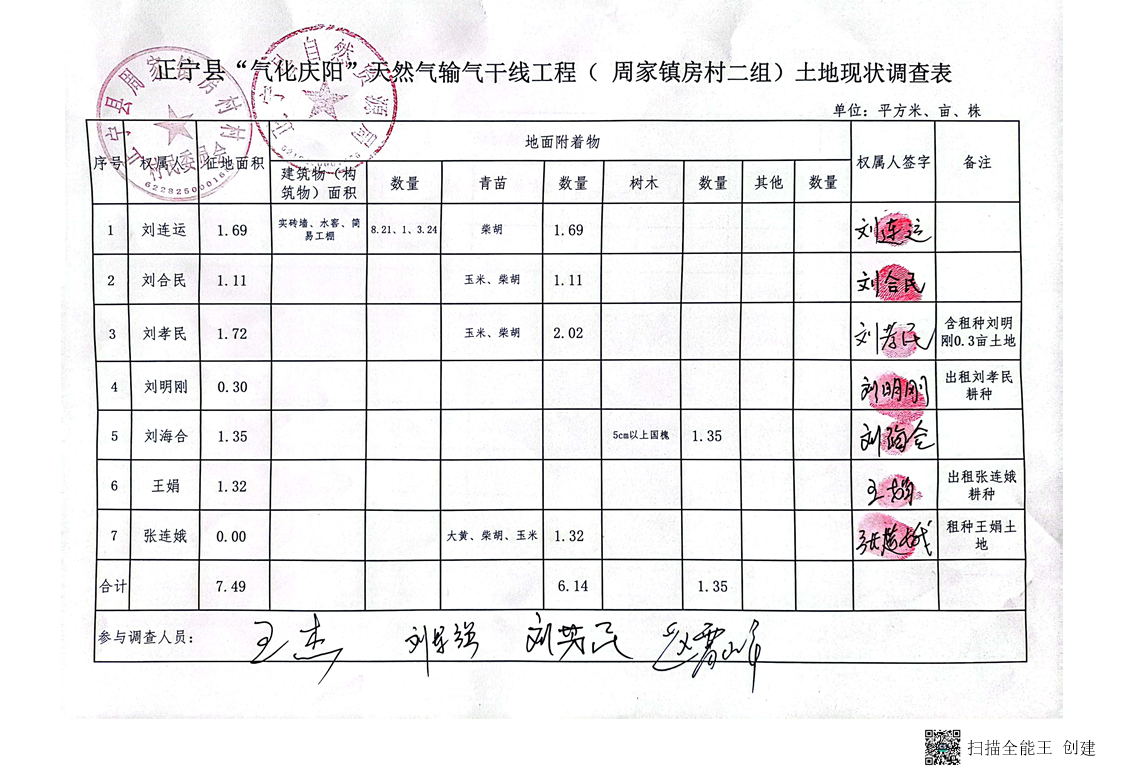 正宁县“气化庆阳”天然气输气干线工程（ 周家镇房村二组）土地现状调查表
单位：平方米、亩、株
序号 权属人 征地面积 地面附着物 权属人签字 备注
建筑物（构筑物）面积 数量 青苗 数量 树木 数量 其他 数量
1 刘连运 1.69 实砖墙、水窖、简易工棚 8.21、1、3.24 柴胡 1.69 刘连运
2 刘合民 1.11 玉米、柴胡 1.11 刘合民
3 刘孝民 1.72 玉米、柴胡 2.02 刘孝民 含租种刘明刚0.3亩土地
4 刘明刚 0.30 刘明刚 出租刘孝民耕种
5 刘海合 1.35 5cm以上国槐 1.35 刘海合
6 王娟 1.32 王娟 出租张连娥耕种
7 张连娥 0.00 大黄、柴胡、玉米 1.32 张连娥 租种王娟土地
合计 7.49 6.14 1.35
参与调查人员： 王杰
扫描全能王 创建